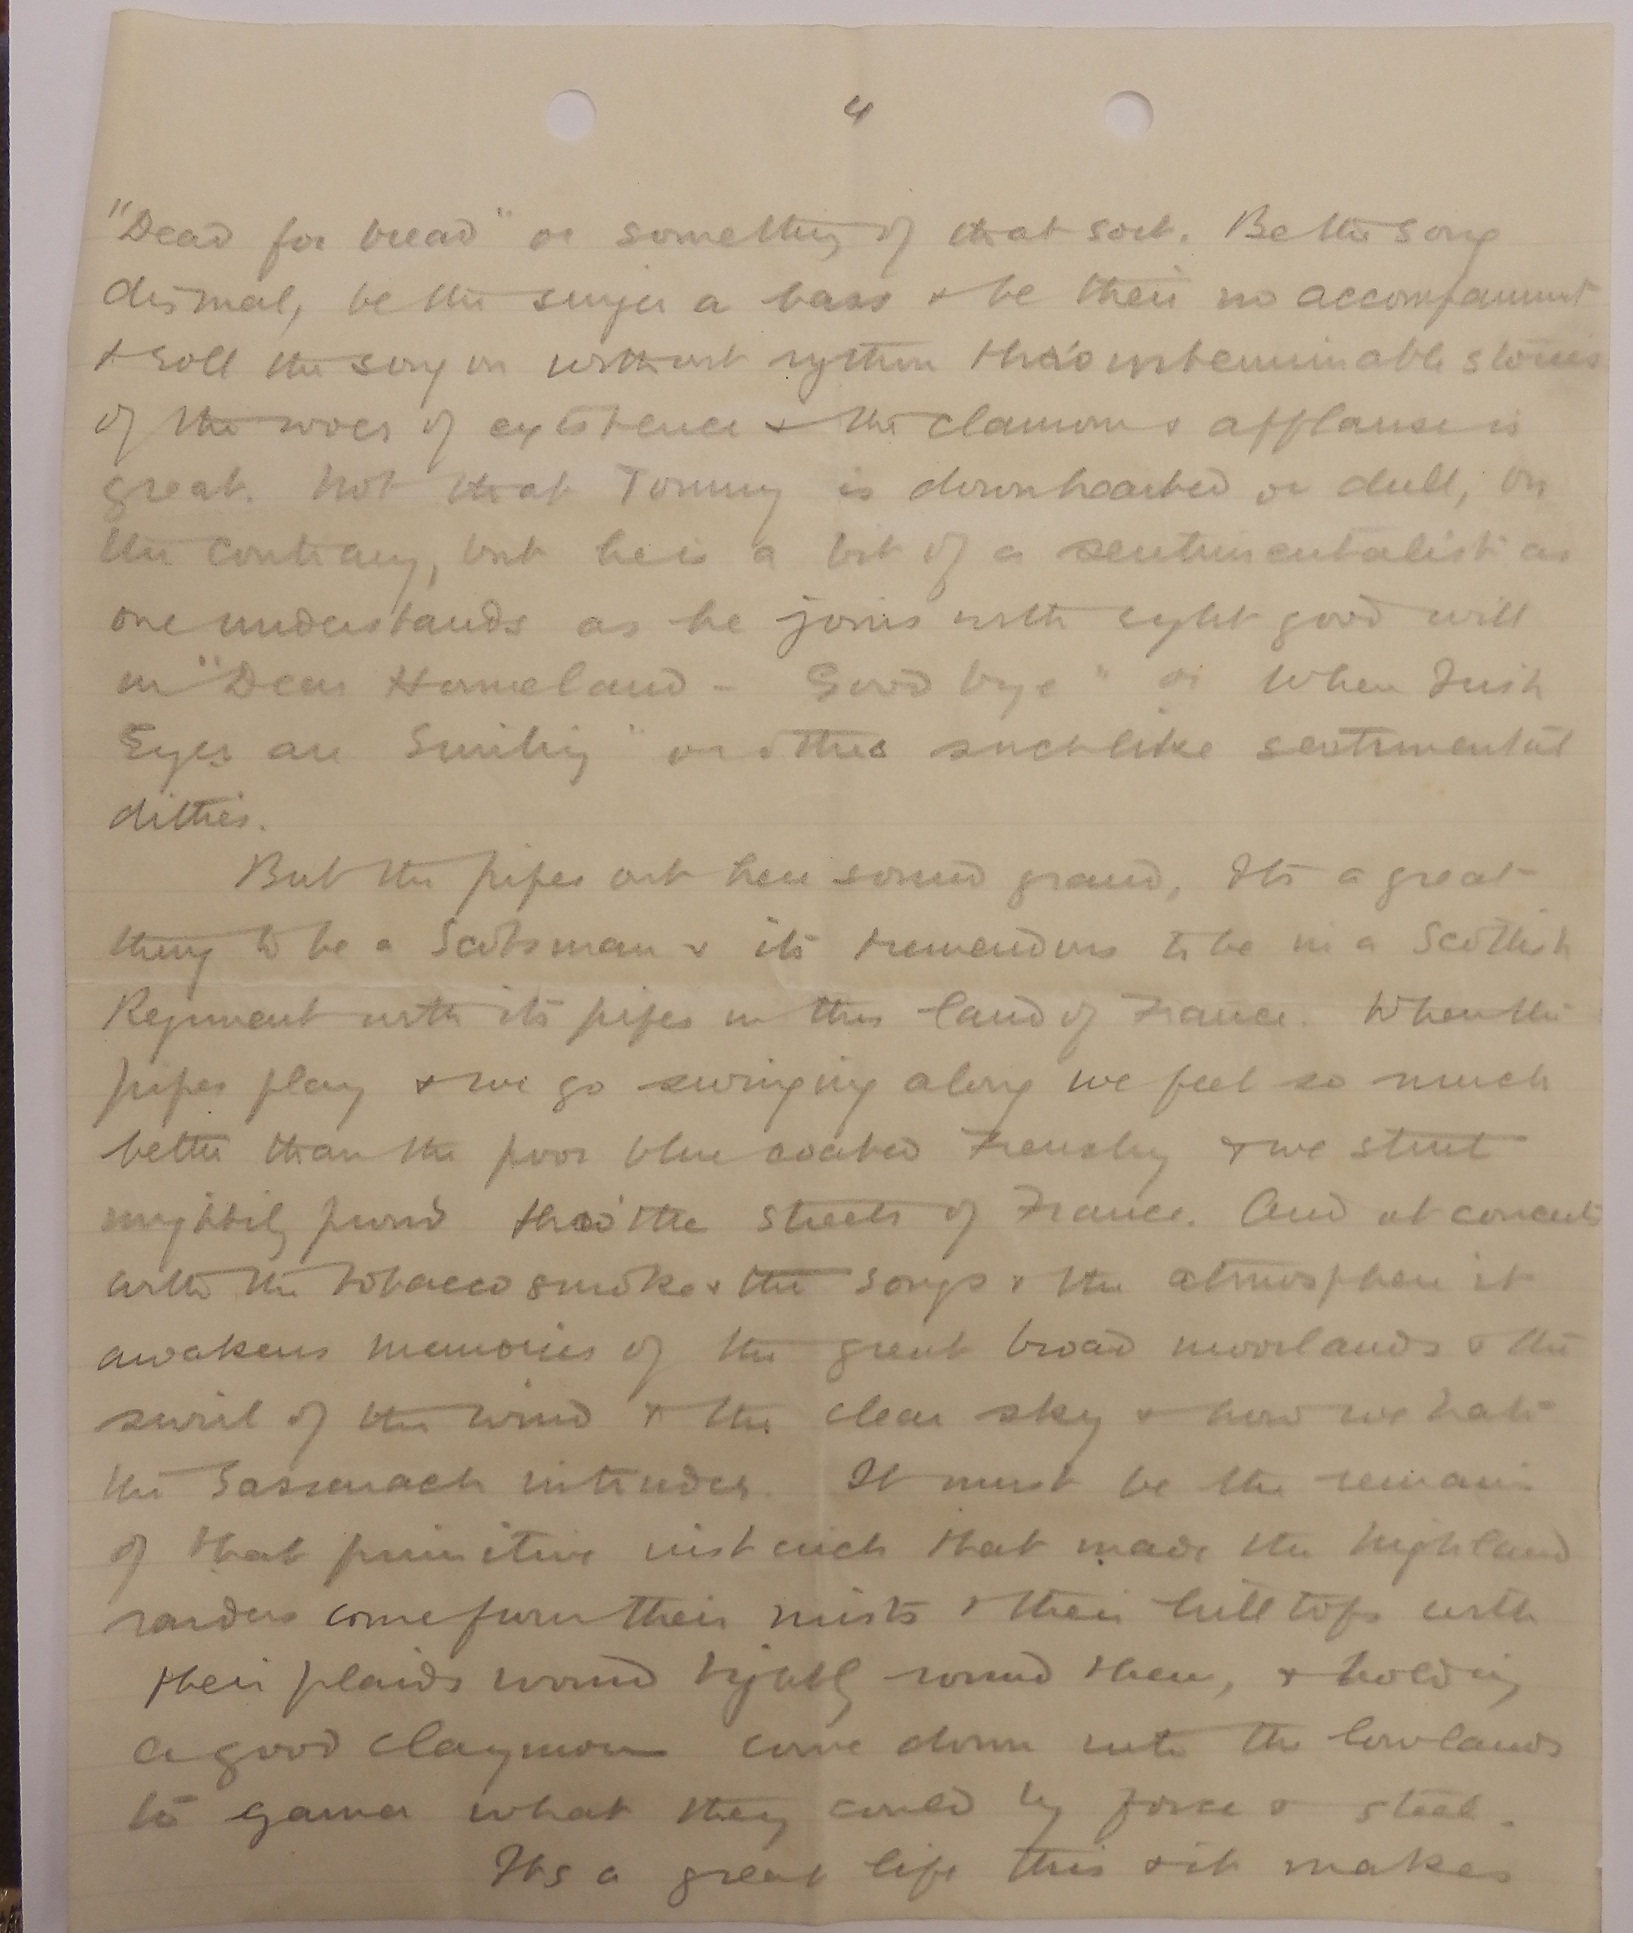 4
"Dead for bread" or something of that sort. Be the song
dismal, be the singer a bass & be their no accompaniment
& roll the song on without rythm thro' interminable stories
of the woes of existence & the clamorous applause is
great. Not that Tommy is downhearted or dull, on
the contrary, but he is a bit of a sentimentalist as
one understands as he joins with right good will
in "Dear Homeland - Good bye" or When Irish
Eyes are Smiling" or other suchlike sentimental
ditties.
But the pipes out here sound grand, Its a great
thing to be a Scotsman & its tremendous to be in a Scottish
Regiment with its pipes in this land of France. When the
pipes play & we go swinging along we feel so much
better than the poor blue coated Frenchy & we strut
mightily proud thro' the streets of France. And at concerts
with the tobacco smoke & the songs & the atmosphere it
awakens memories of the great broad moorlands & the
swirl of the wind & the clear sky & how we hate
the Sassenach intruder. It must be the remains
of that primitive instinct that made the highland
raiders come from their mists & their hill tops with
their plaids wound tightly round them, & holding
a good claymore come down into the lowlands
to garner what they could by force & steel.
Its a great life this & it makes